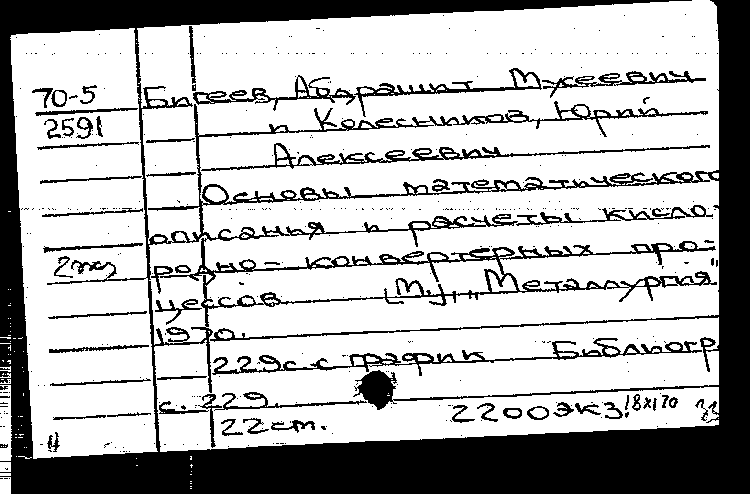 70-5 Бигеев, Абдрашит Мусеевич
2591 и Колесников, Юрий
Алексеевич
Основы математического
описания и расчеты кисло-
2экз родно-конвертерных про-
цессов. [М.], „Металлургия"
1970.
229с с график Библиогр
с. 229.
22см. 2200экз. 18х170